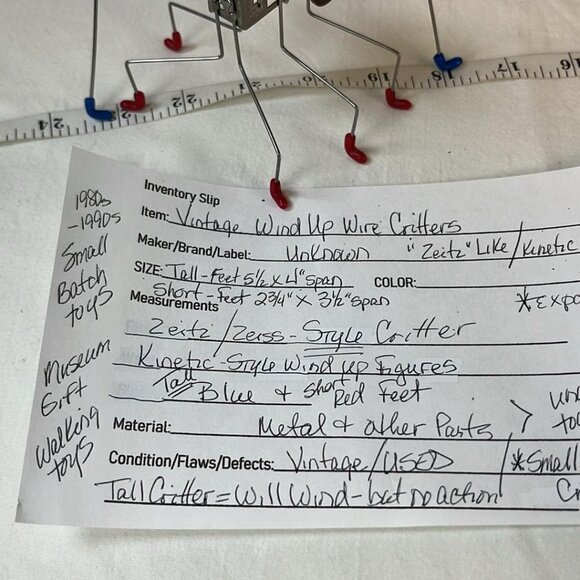 Inventory Slip
Item: Vintage Wind Up Wire Critters
Maker/Brand/Label: Unknown "Zeitz" Like/Kinetic
SIZE: Tall-Feet 5½ X 4" span COLOR:
Short-feet 2¾" X 3½" span
Measurements
*Expo
Zeitz/Zeiss-STYLE Critter
Kinetic-Style Wind up Figures
Tall Blue & Short Red Feet
Material: Metal & other Parts
Condition/Flaws/Defects: Vintage/USED *Small
Tall Critter = Will Wind-but no action
1980s
-1990s
Small
Batch
toys
Museum
Gift
Walking
toys
24 23 22 21 19 18 17 16